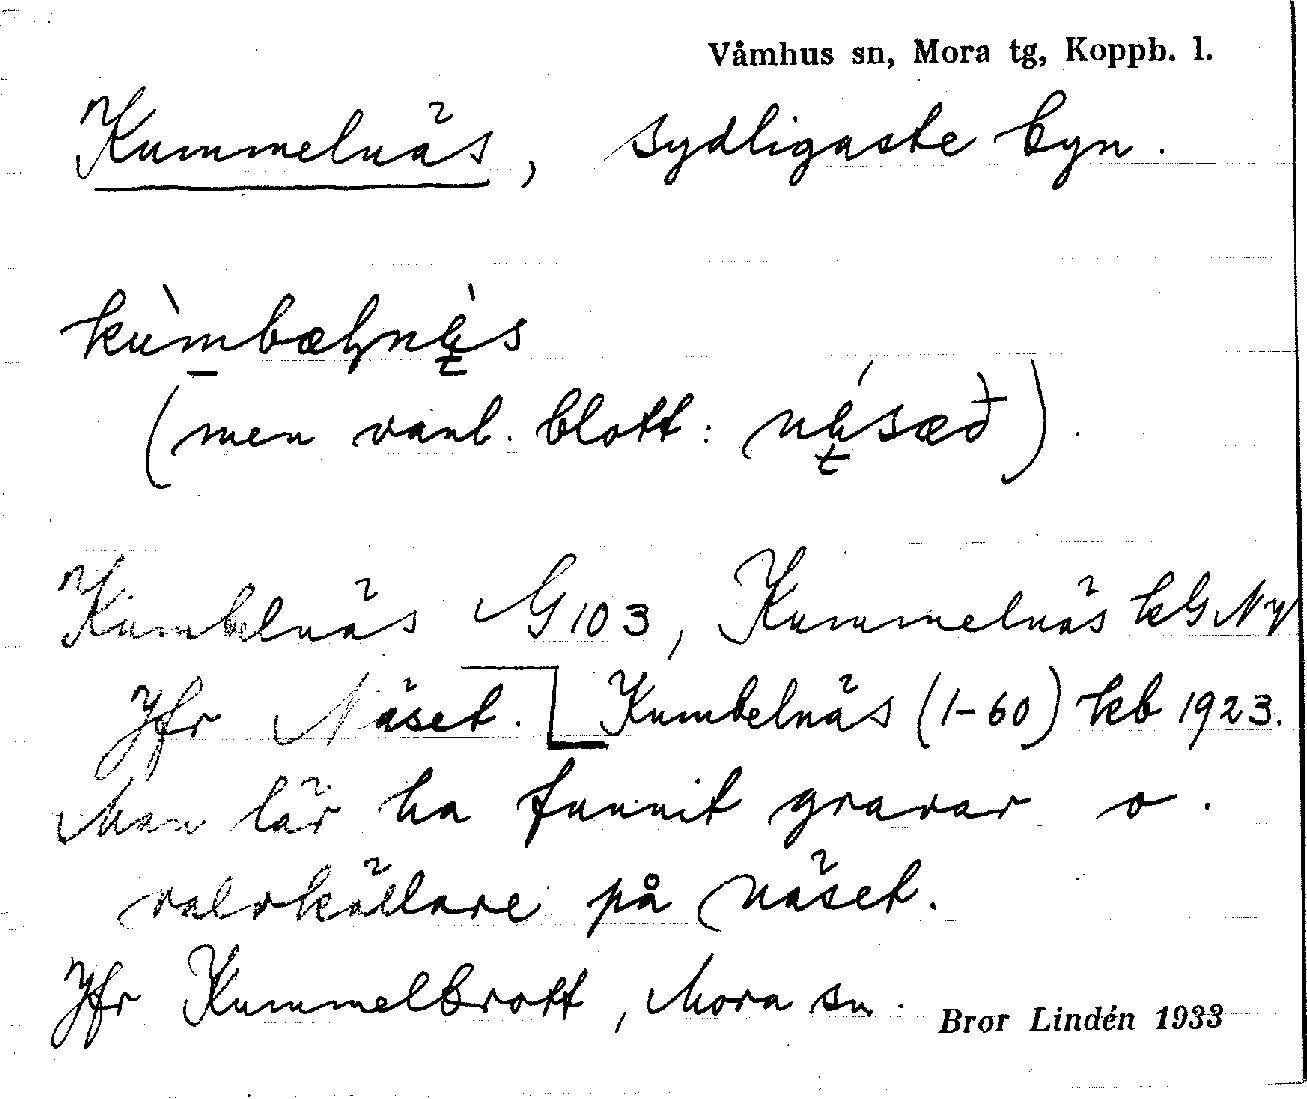 Våmhus sn, Mora tg, Koppb. l.
Kummelnäs, sydligaste byn.
(men vanl. blott:
Kumbelnäs G 103, Kummelnäs kGNy
Jfr Näset. Kumbelnäs (1-60) kb 1923.
Man lär ha funnit gravar o.
valvkällare på näset.
Jfr Kummelbrott, Mora sn.
Bror Lindén 1933